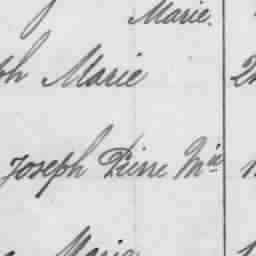 Marie.
ph Marie
Joseph Pierre Mie
Marie